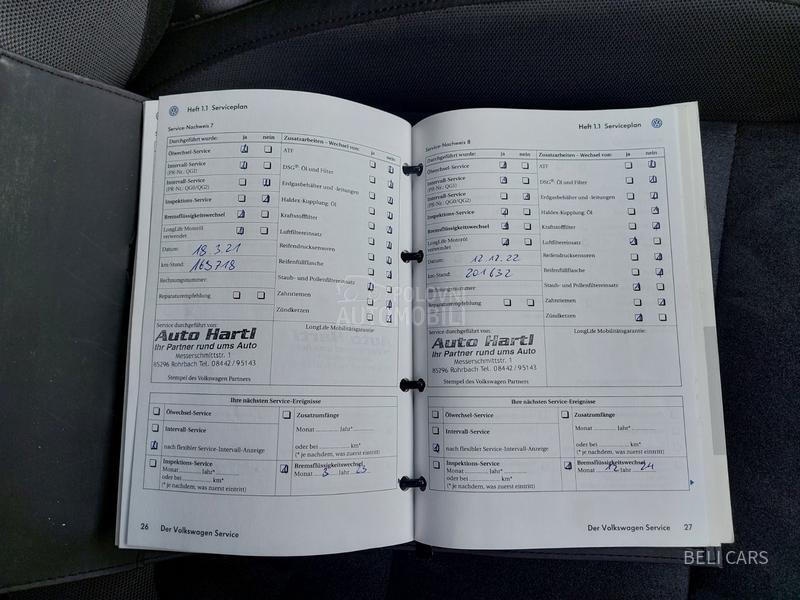 Heft 1.1 Serviceplan
Service-Nachweis 7
Durchgeführt wurde: ja nein
Ölwechsel-Service
Intervall-Service
(PR-Nr.: QG1)
Intervall-Service
(PR-Nr.: QG0/QG2)
Inspektions-Service
Bremsflüssigkeitswechsel
LongLife Motoröl
verwendet
Datum: 18.3.21
km-Stand: 165718
Rechnungsnummer:
Reparaturempfehlung
Zusatzarbeiten - Wechsel von: ja nein
ATF
DSG®: Öl und Filter
Erdgasbehälter und -leitungen
Haldex-Kupplung: Öl
Kraftstofffilter
Luftfiltereinsatz
Reifendrucksensoren
Reifenfüllflasche
Staub- und Pollenfiltereinsatz
Zahnriemen
Zündkerzen
Service durchgeführt von:
Auto Hartl
Ihr Partner rund ums Auto
Messerschmittstr. 1
85296 Rohrbach Tel. 08442/95143
Stempel des Volkswagen Partners
LongLife Mobilitätsgarantie:
Ihre nächsten Service-Ereignisse
Ölwechsel-Service
Intervall-Service
nach flexibler Service-Intervall-Anzeige
Inspektions-Service
Monat Jahr*
oder bei km*
(* je nachdem, was zuerst eintritt)
Zusatzumfänge
Monat Jahr*
oder bei km*
(* je nachdem, was zuerst eintritt)
Bremsflüssigkeitswechsel
Monat 3 Jahr 23
26 Der Volkswagen Service
Heft 1.1 Serviceplan
Service-Nachweis 8
Durchgeführt wurde: ja nein
Ölwechsel-Service
Intervall-Service
(PR-Nr.: QG1)
Intervall-Service
(PR-Nr.: QG0/QG2)
Inspektions-Service
Bremsflüssigkeitswechsel
LongLife Motoröl
verwendet
Datum: 12.12.22
km-Stand: 201632
Zusatzarbeiten - Wechsel von: ja nein
ATF
DSG®: Öl und Filter
Erdgasbehälter und -leitungen
Haldex-Kupplung: Öl
Kraftstofffilter
Luftfiltereinsatz
Reifendrucksensoren
Reifenfüllflasche
Staub- und Pollenfiltereinsatz
Zahnriemen
Zündkerzen
Service durchgeführt von:
Auto Hartl
Ihr Partner rund ums Auto
Messerschmittstr. 1
85296 Rohrbach Tel. 08442/95143
Stempel des Volkswagen Partners
LongLife Mobilitätsgarantie:
Ihre nächsten Service-Ereignisse
Ölwechsel-Service
Intervall-Service
nach flexibler Service-Intervall-Anzeige
Inspektions-Service
Monat Jahr*
oder bei km*
(* je nachdem, was zuerst eintritt)
Zusatzumfänge
Monat Jahr*
oder bei km*
(* je nachdem, was zuerst eintritt)
Bremsflüssigkeitswechsel
Monat 12 Jahr 24
Der Volkswagen Service 27
POLOVNI
AUTOMOBILI
BELI CARS